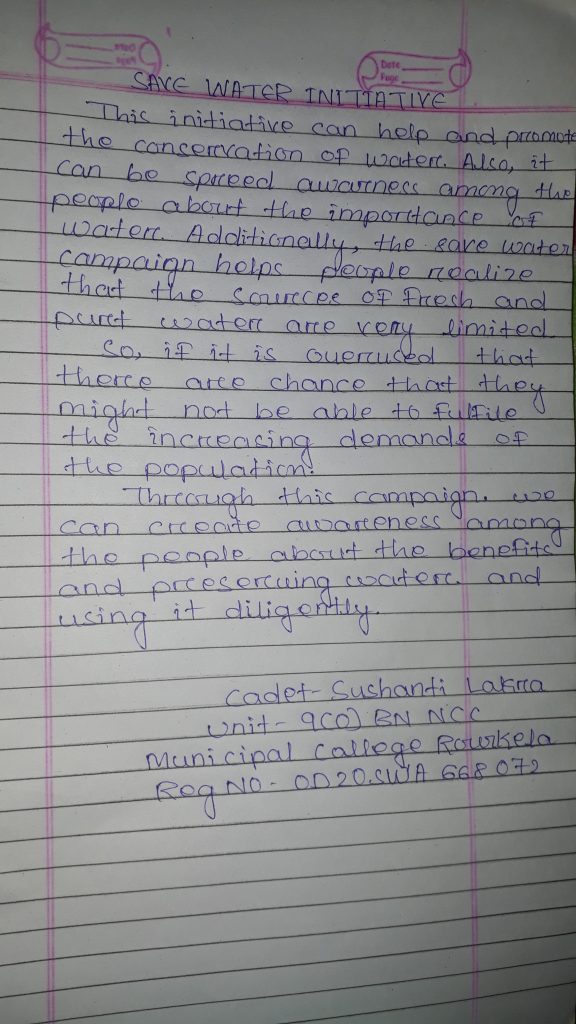 Date
Page
SAVE WATER INITIATIVE
This initiative can help and promote
the conservation of water. Also, it
can be spreed awarness among the
people about the importance of
water. Additionally, the save water
campaign helps people realize
that the sources of fresh and
puret water are very limited
So, if it is overused that
there are chance that they
might not be able to fulfile
the increasing demands of
the population.
Through this campaign. we
can create awareness among
the people about the benefits
and preserving water. and
using it diligently.
Cadet- Sushanti Lakra
Unit- 9(O) BN NCC
Municipal College Rourkela
Reg NO - OD20SWA 668072